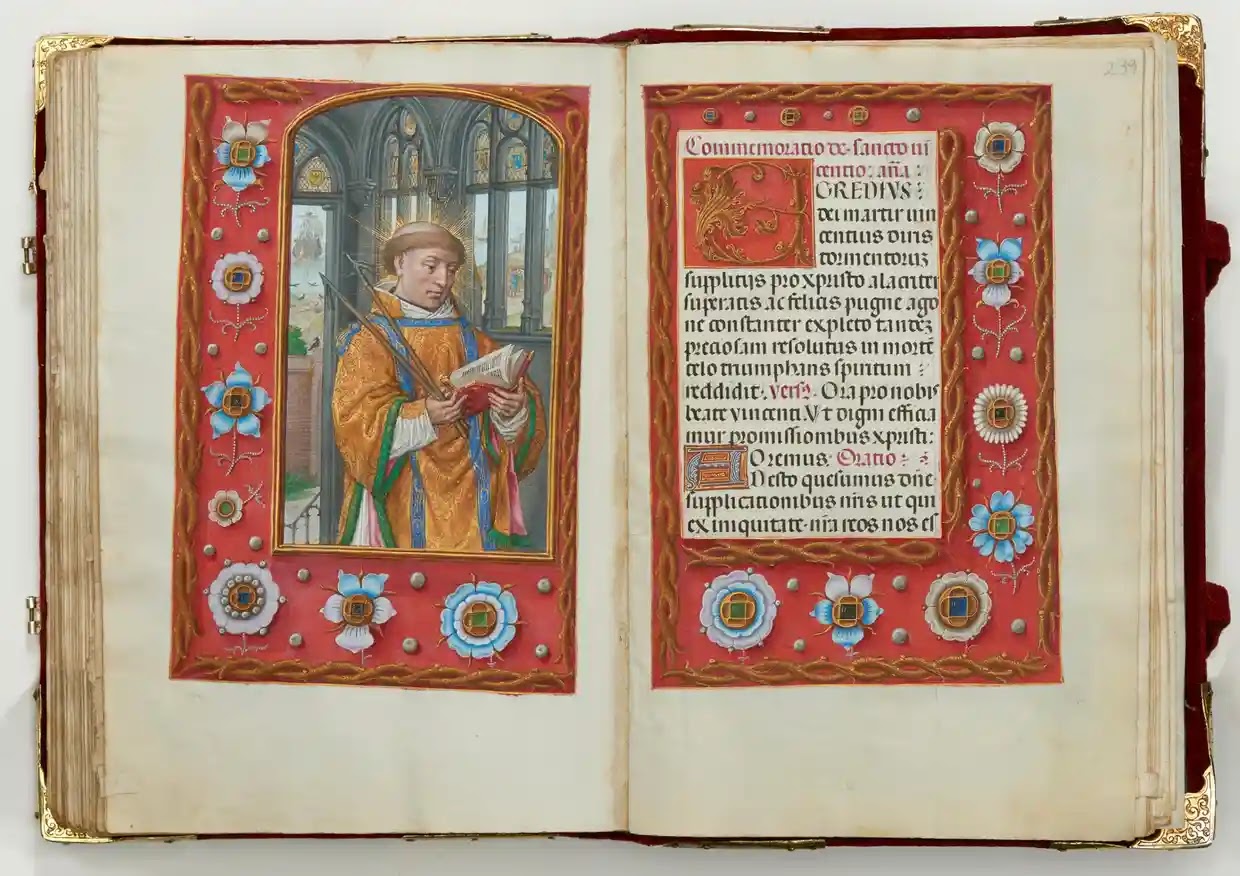 239
Commemoratio de sancto vi
centio: añã
EGREDIVS
dei martir vin
centius diris
tormentoruz
supplicijs pro xpristo alacriter
superatis ac felicis pugne ago
ne constanter expleto tandez
preciosam resolutus in morte
celo triumphans spiritum
reddidit. vers9. Ora pro nobis
beate vincenti. Vt digni efficia
mur promissionibus xpristi:
Oremus: Oratio:
ADesto quesumus dñe
supplicationibus nris ut qui
ex iniquitate nra reos nos es